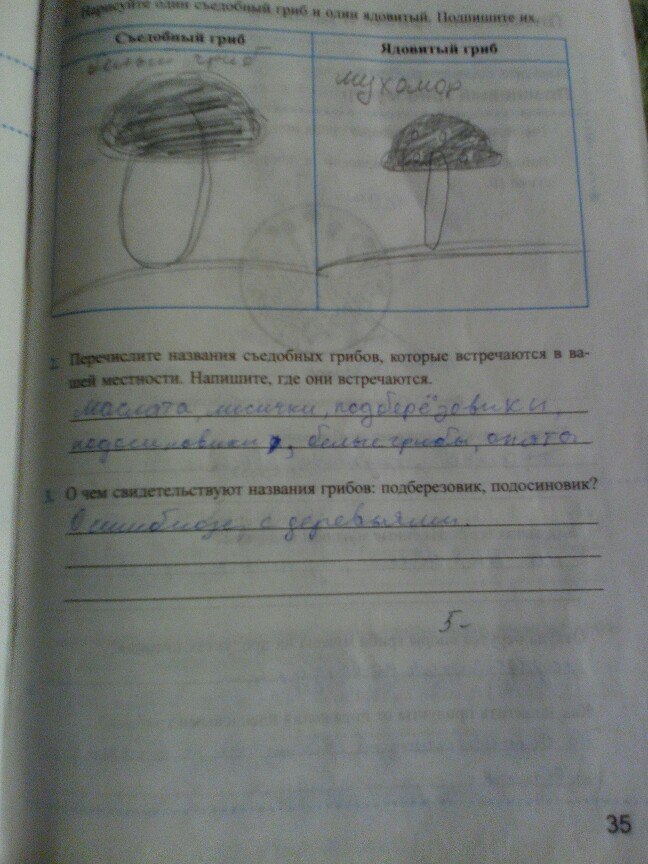 Нарисуйте один съедобный гриб и один ядовитый. Подпишите их.
Съедобный гриб
Ядовитый гриб
белый гриб
мухомор
2. Перечислите названия съедобных грибов, которые встречаются в ва-
шей местности. Напишите, где они встречаются.
Маслята, лисички, подберёзовики,
подосиновики, белые грибы, опята
3. О чем свидетельствуют названия грибов: подберезовик, подосиновик?
О симбиозе с деревьями.
5-
35